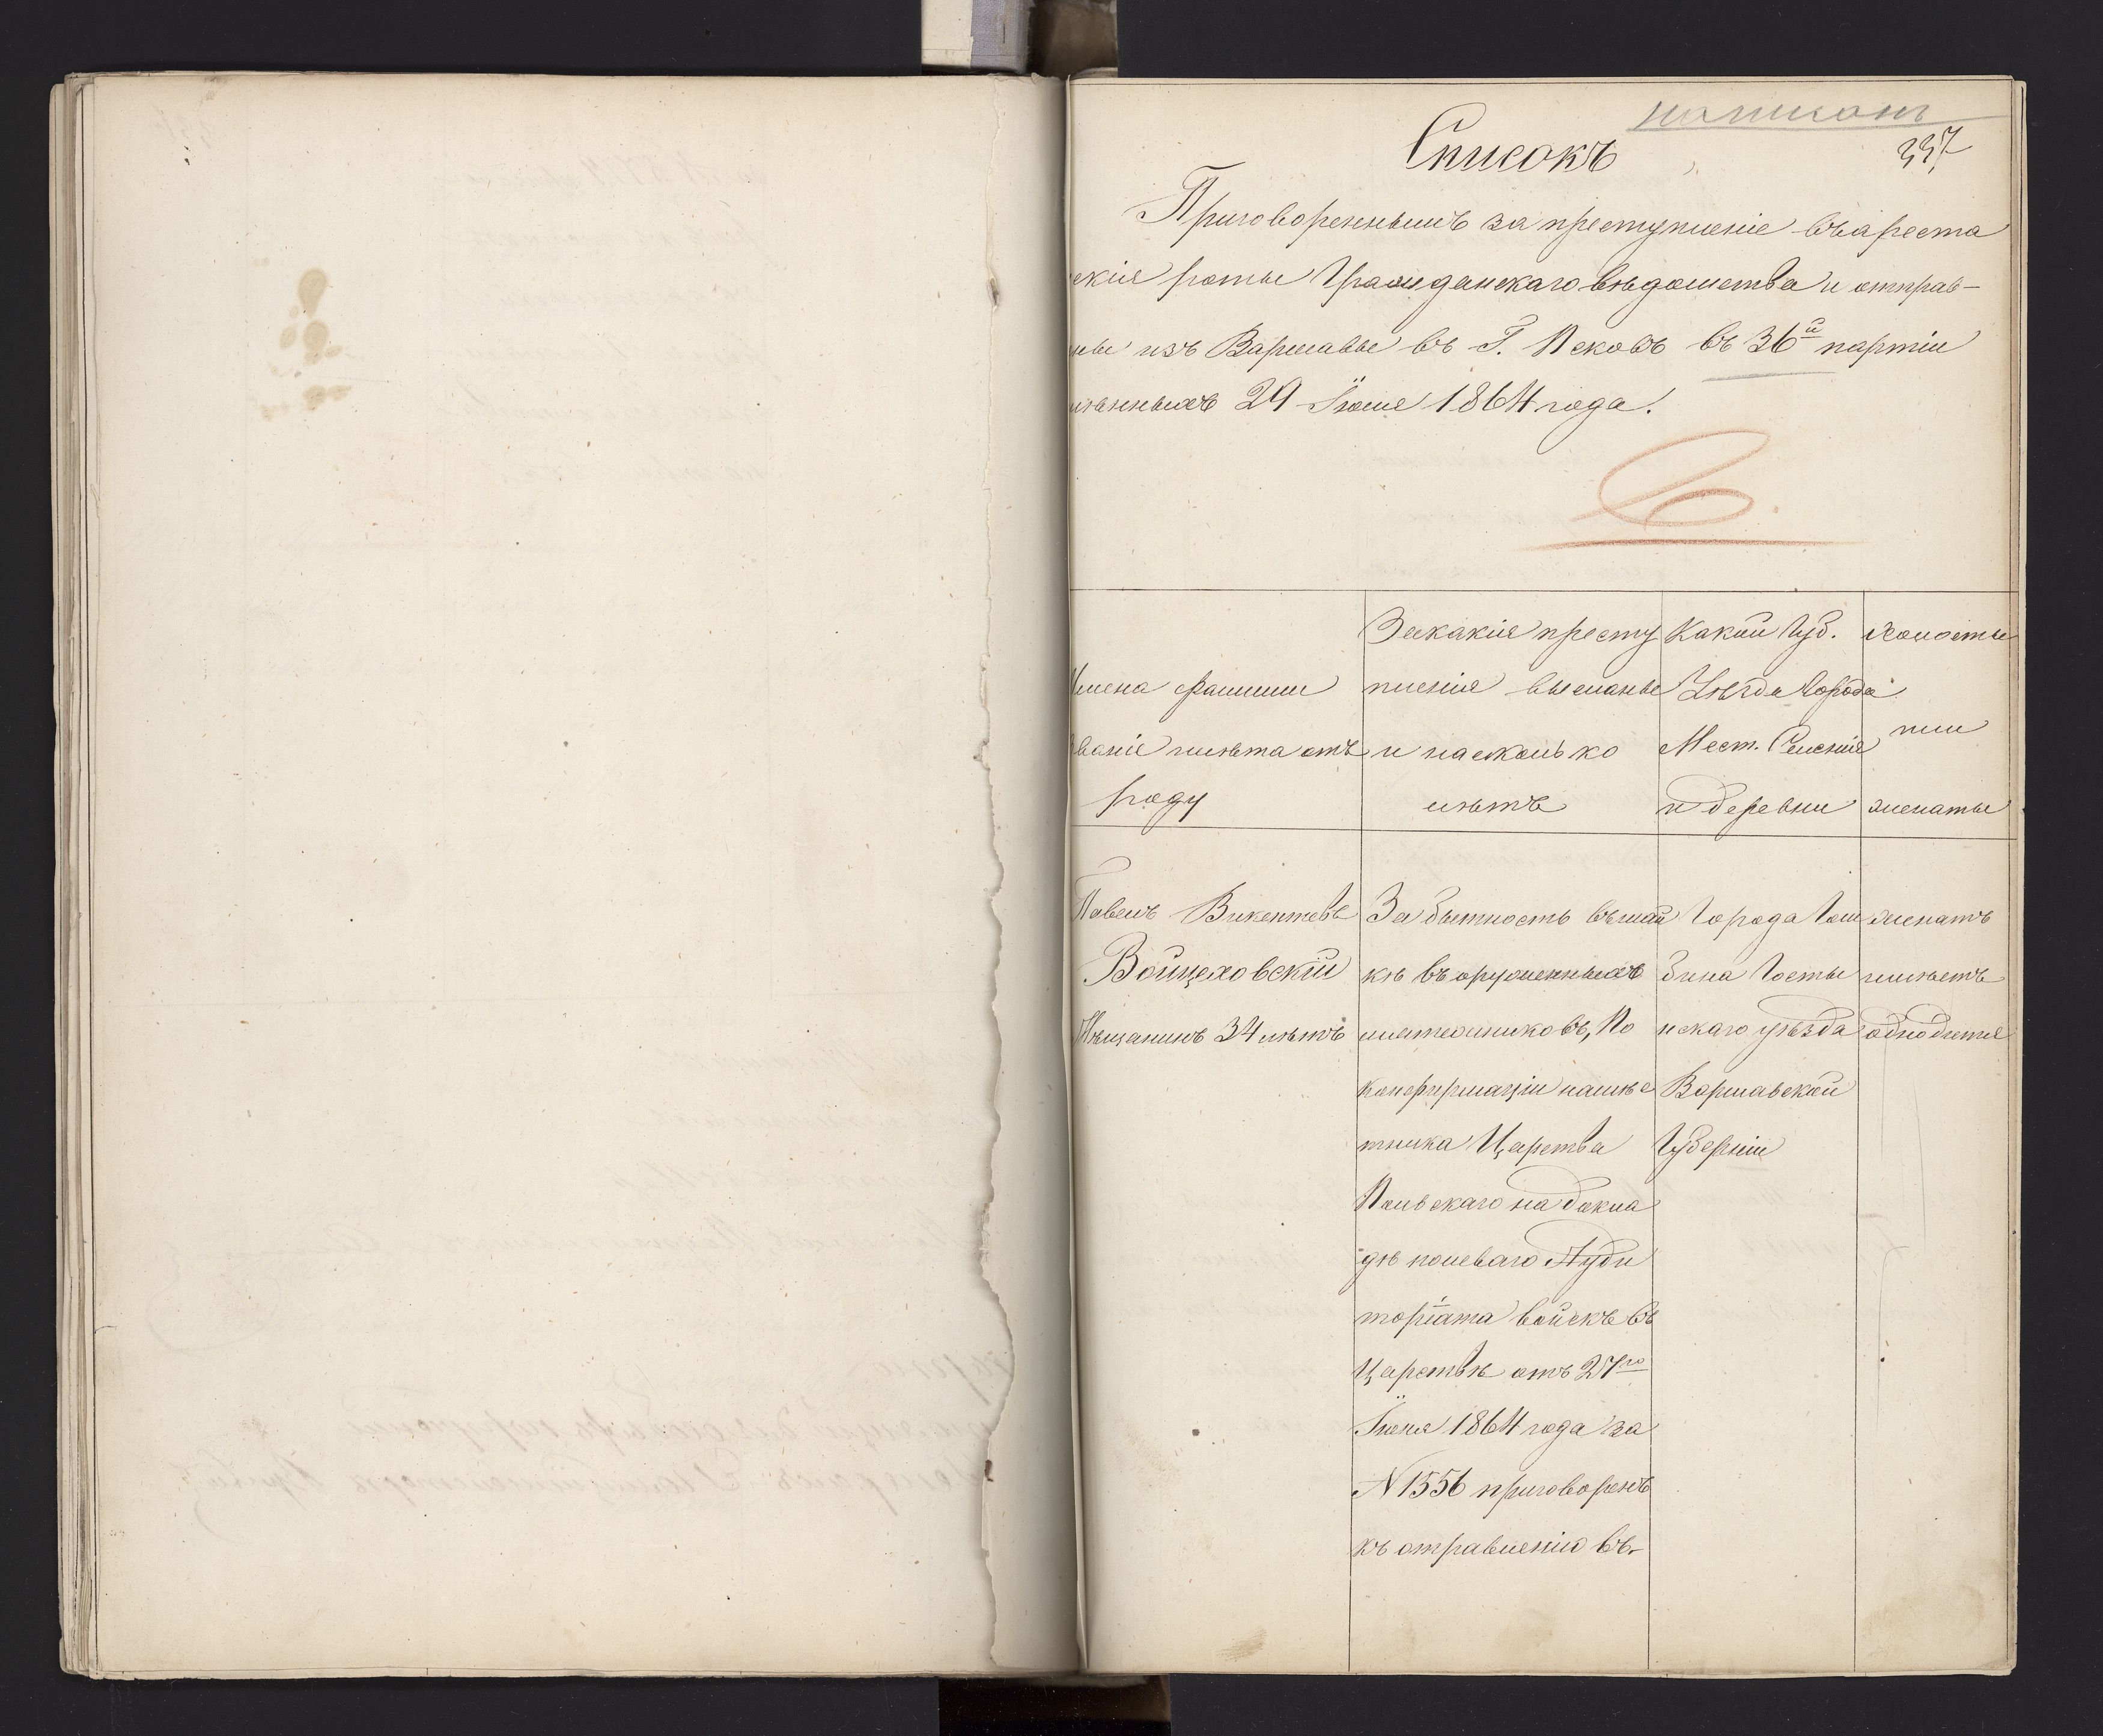 написанъ
Списокъ
337
Приговореннымъ за преступленіе въ ареста
скія роты Гражданскаго вѣдомства и отправ-
ны изъ Варшавы въ Г. Псковъ въ 36й партіи
29 Іюня 1864 года.
Имена фамиліи
званіе и лѣта отъ
роду
За какія престу
пленія высланы
и на сколько
лѣтъ
Какой Губ.
Уѣзда Города
Мест. Селенія
и деревни
Холосты
или
женаты
Павелъ Викентевъ
Войцеховскій
Мѣщанинъ 34 лѣтъ
За бытность въ шай
кѣ вооруженныхъ
мятежниковъ, По
конфирмаціи намѣс
тника Царства
Польскаго на докла
дѣ полеваго Ауди
торіата войскъ въ
Царствѣ отъ 27го
Іюня 1864 года за
N 1556 приговоренъ
къ отправленію въ
Города Гом
бина Госты
нскаго уѣзда
Варшавской
Губерніи
женатъ
имѣетъ
одно дитя